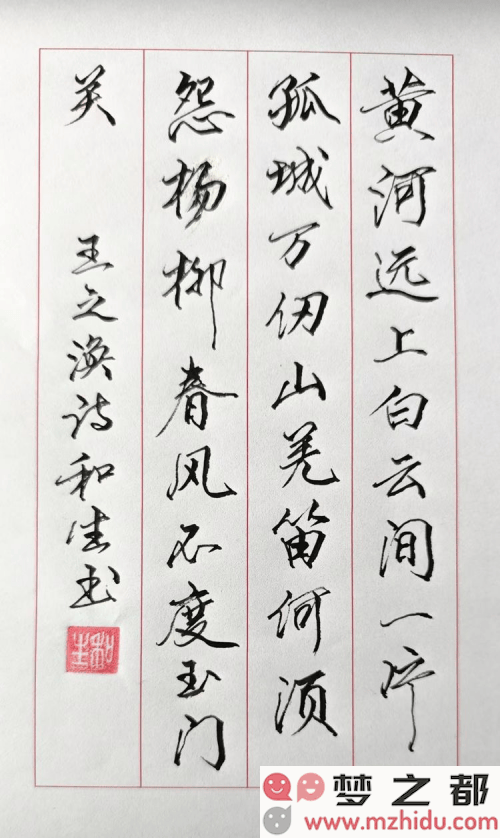 黄河远上白云间一片
孤城万仞山羌笛何须
怨杨柳春风不度玉门
关
王之涣诗和生书
和生
梦之都
www.mzhidu.com